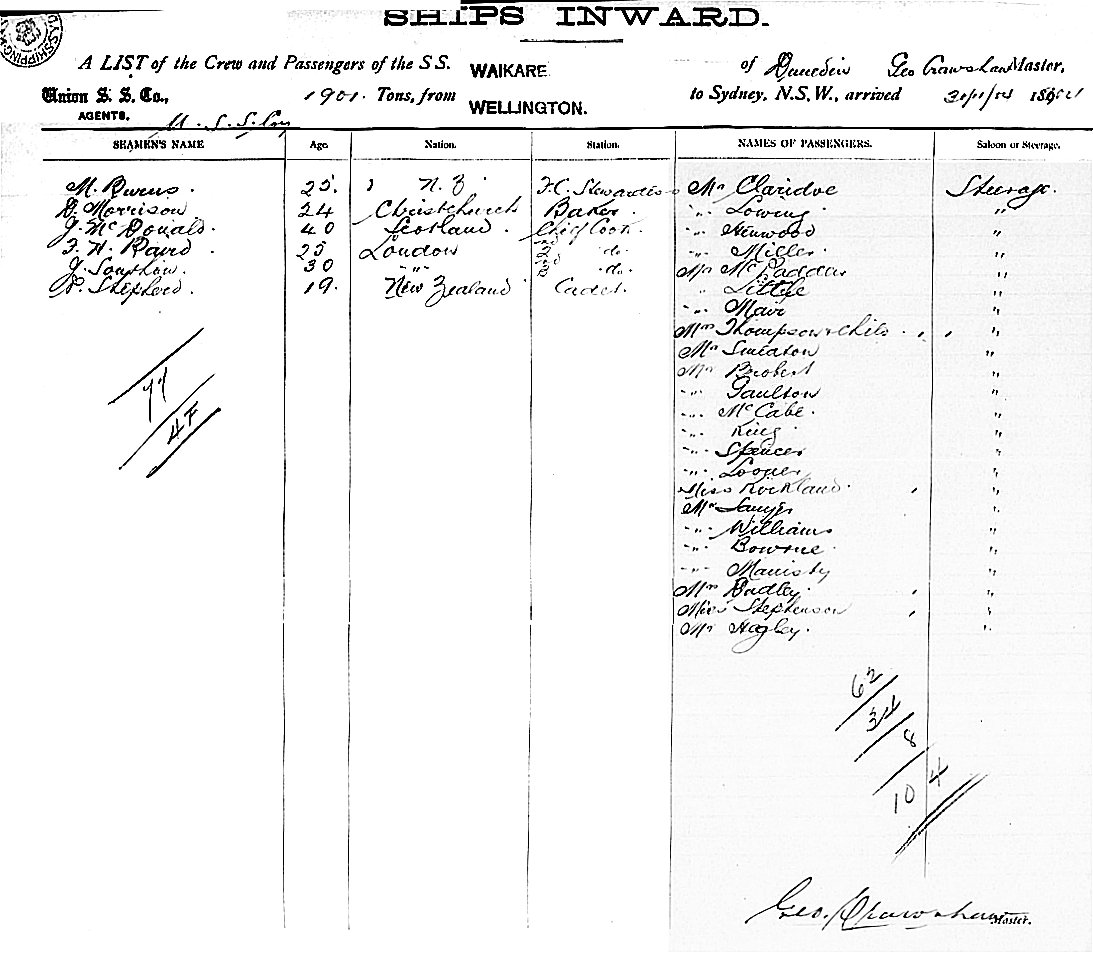 SHIPS INWARD.
A LIST of the Crew and Passengers of the S S. WAIKARE of Dunedin Geo Crawshaw Master,
Union S. S. Co., 1901. Tons, from WELLINGTON. to Sydney, N.S.W., arrived
AGENTS. U. S. S. Coy
SEAMEN'S NAME Age. Nation. Station. NAMES OF PASSENGERS. Saloon or Steerage.
M. Burns 25. N. Z. F.C. Stewardess Mr Claridge Steerage.
D. Morrison 24 Christchurch Baker. -"- Lowing "
J. McDonald. 40 Scotland. Chief Cook. -"- Henwood "
F. H. Baird 25 London do. -"- Miller "
J. 30 -"- do. Mr McPadden "
P. Shepherd. 19. New Zealand Cadet. " Little "
-"- Mair "
Mrs Thompson & Child "
Mr Smeaton "
Mr "
-"- Gaulton "
-"- McCabe. "
-"- King "
-"- Spencer "
-"- Looney "
Miss Rockland. "
Mr Sawyer "
-"- Williams "
-"- Bowrne "
-"- Manisty "
Mrs Dudley. "
Miss Stephenson "
Mr Hagley. "
77
4F
62
34
8
10 4
Geo. Crawshaw Master.